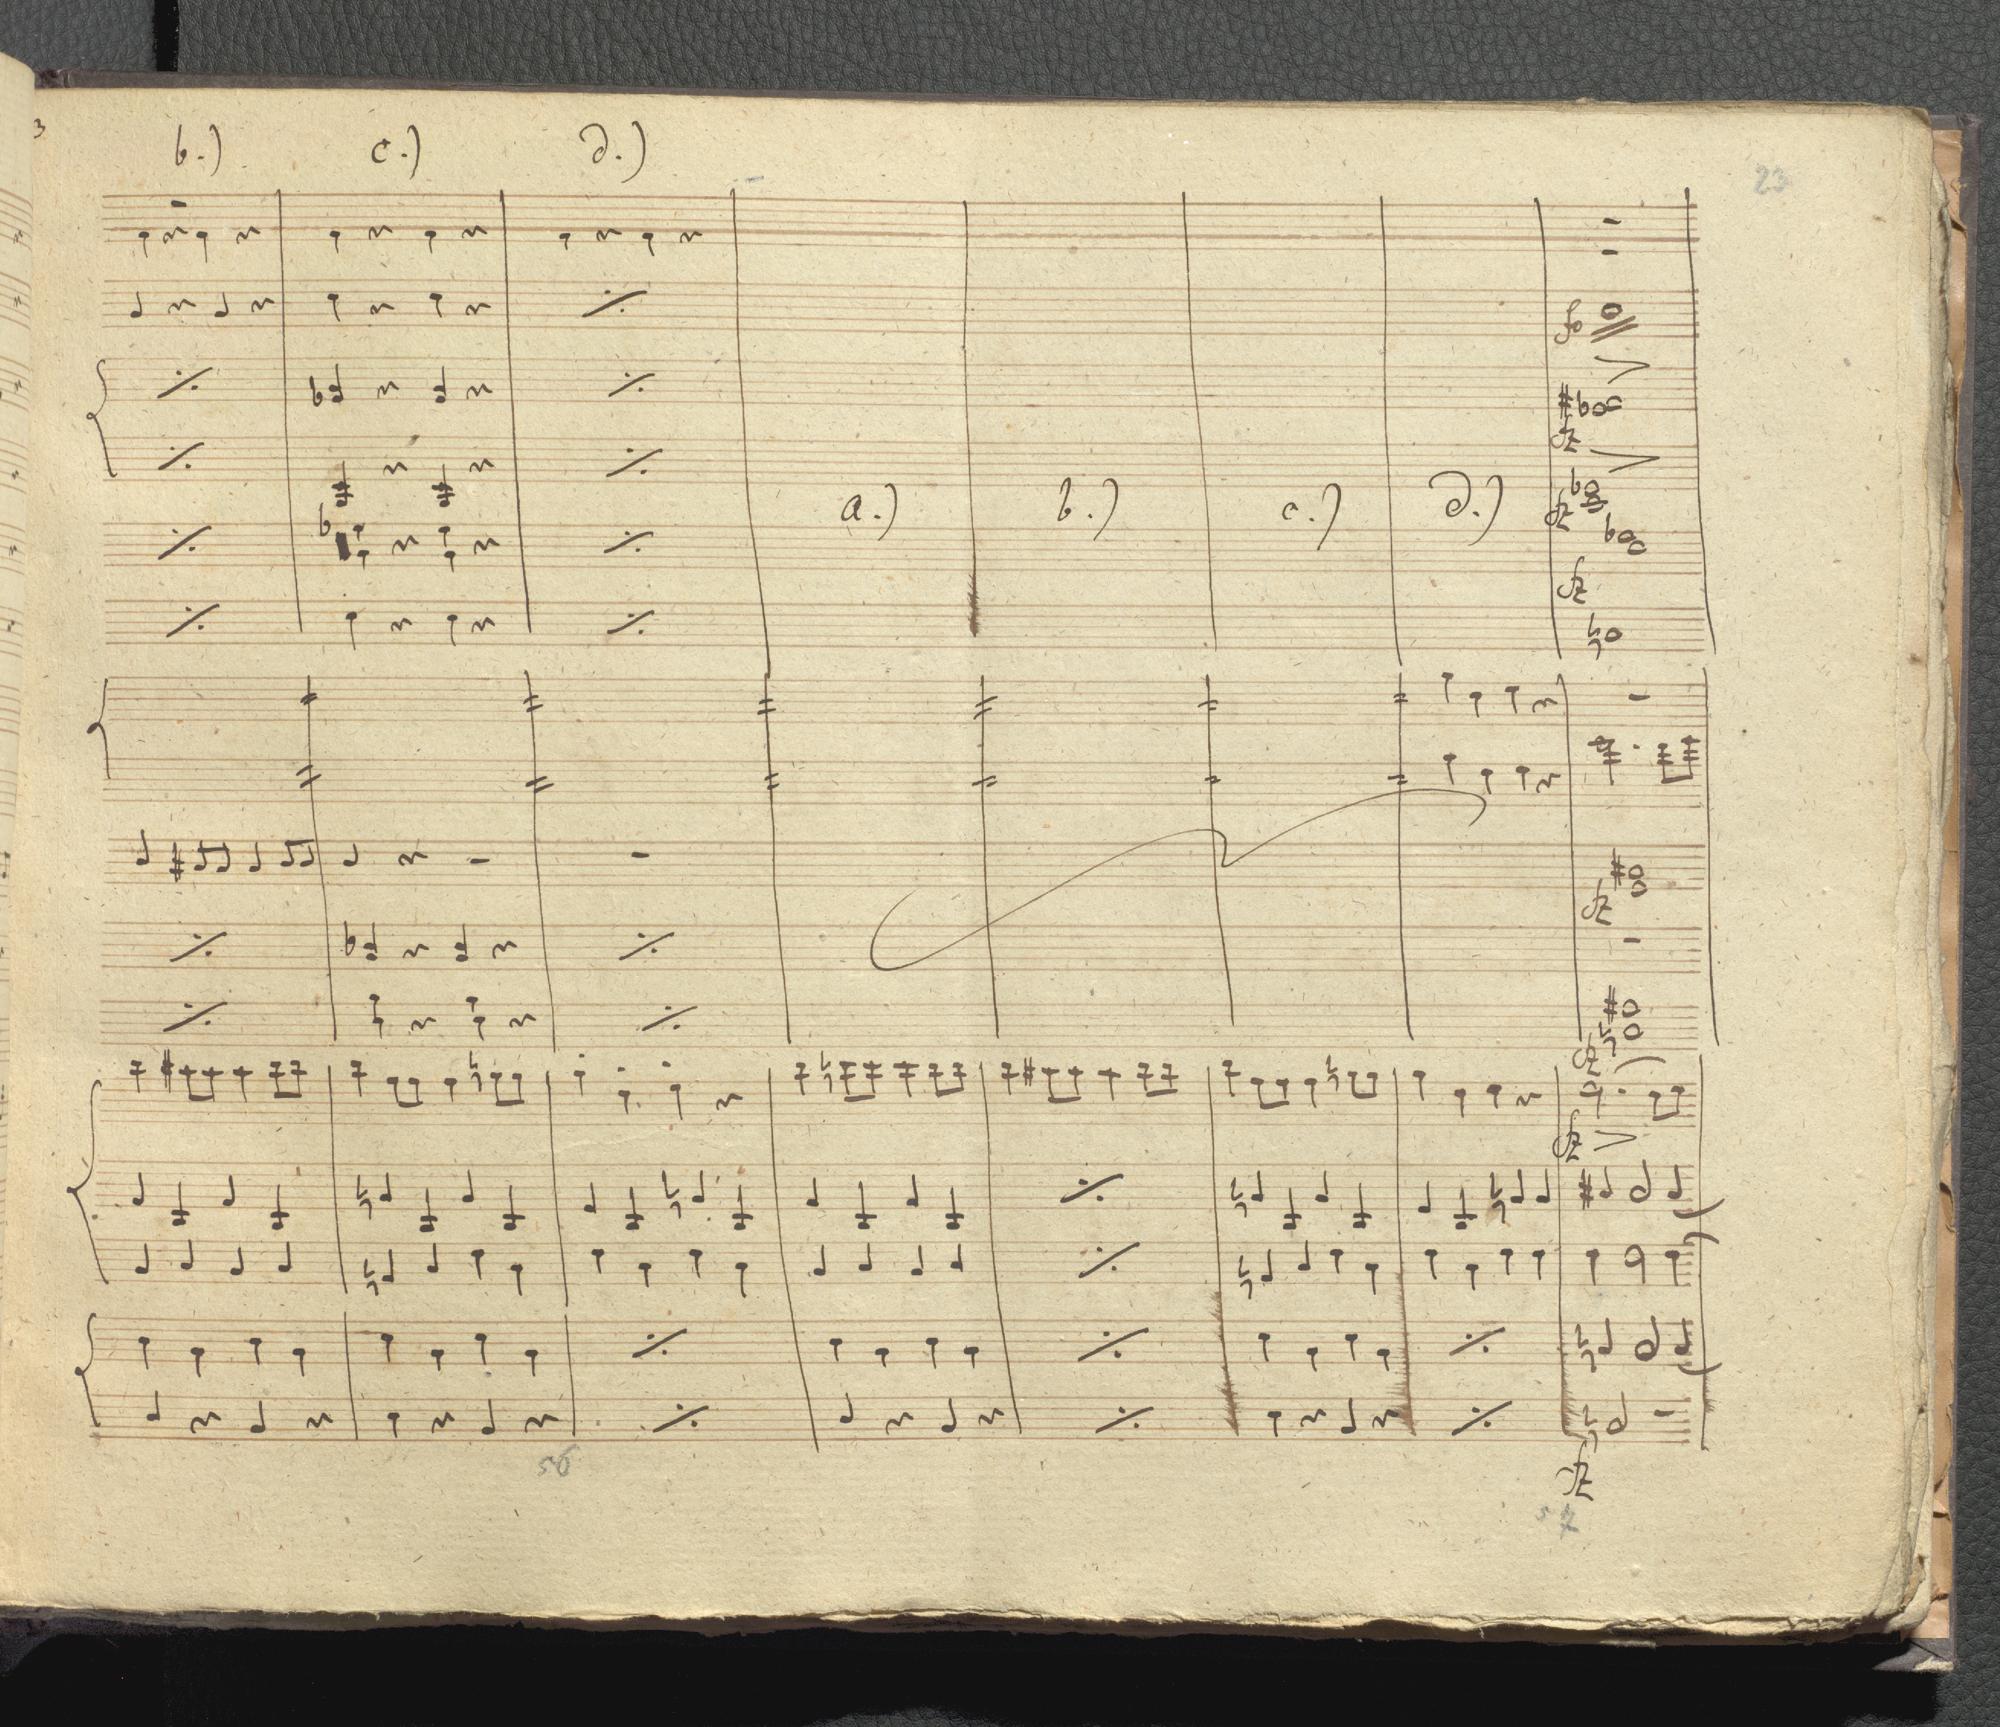 3
b.) c.) d.)
23
fo
fz
fz
a.) b.) c.) d.)
fz
fz
fz
fz
56
fz
57